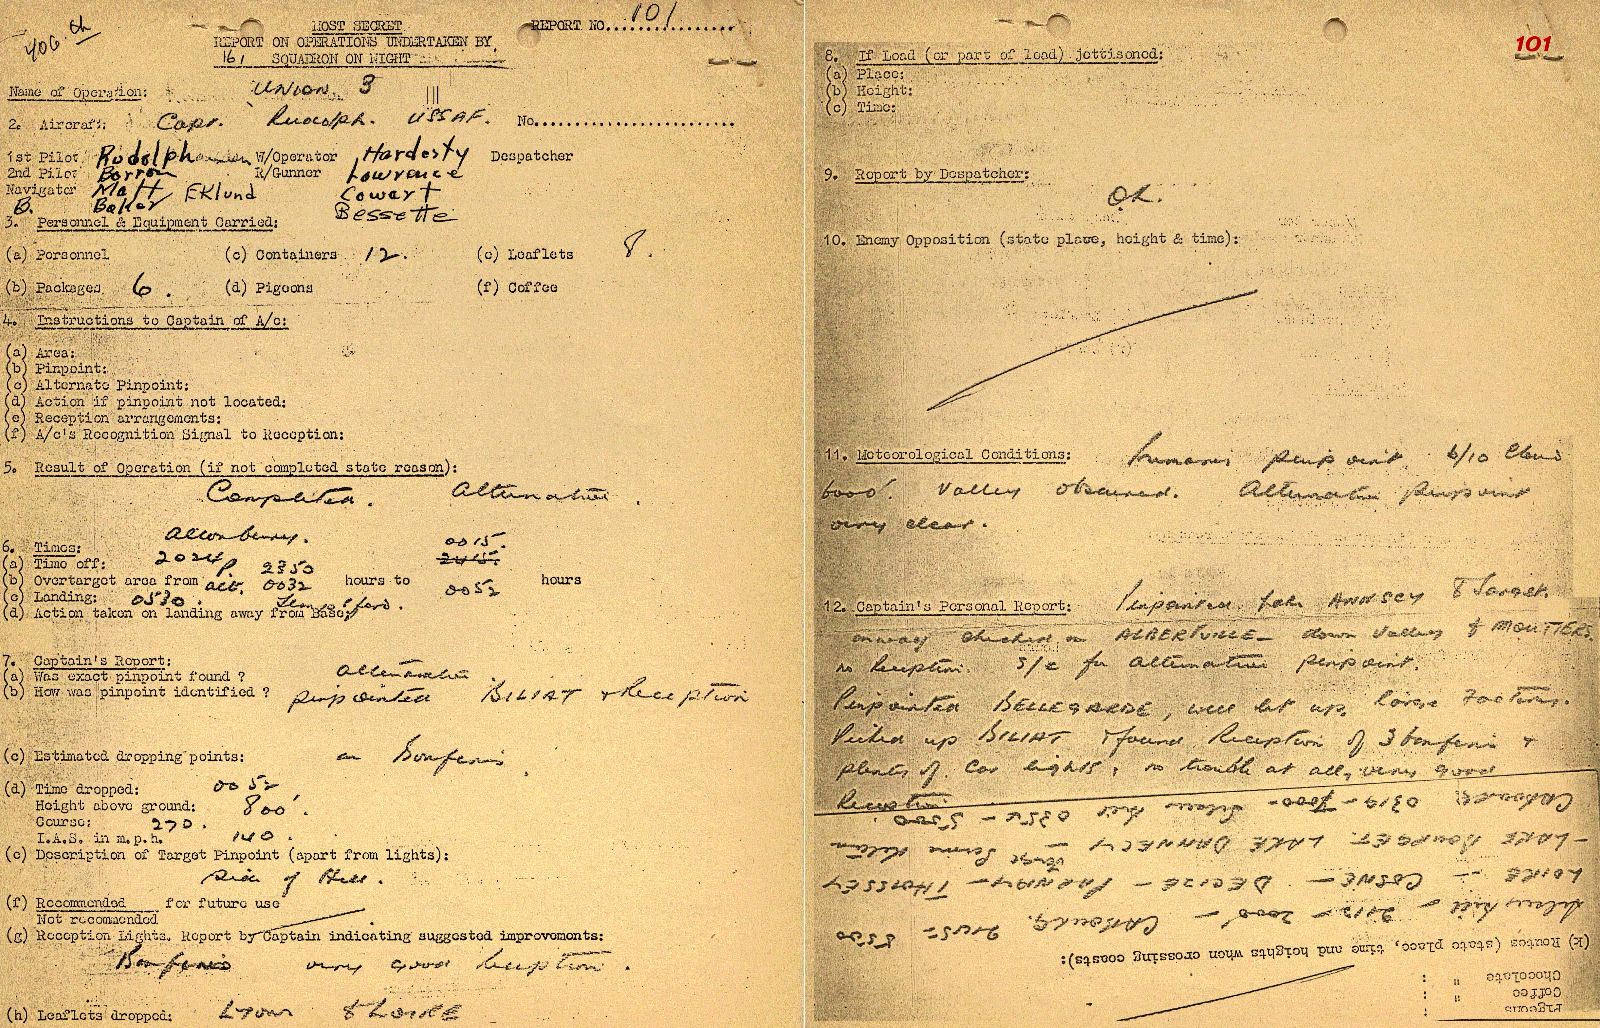 406 ch
MOST SECRET
REPORT NO. 101
REPORT ON OPERATIONS UNDERTAKEN BY
161 SQUADRON ON NIGHT
Name of Operation: UNION 3
2. Aircraft: Capt. Rudolph. USSAF. No.
1st Pilot Rudolph W/Operator Hardesty Despatcher
2nd Pilot Barron R/Gunner Lawrence
Navigator Matt EKlund Cowart
B. Baker Bessette
3. Personnel & Equipment Carried:
(a) Personnel (c) Containers 12. (e) Leaflets 8.
(b) Packages 6. (d) Pigeons (f) Coffee
4. Instructions to Captain of A/c:
(a) Area:
(b) Pinpoint:
(c) Alternate Pinpoint:
(d) Action if pinpoint not located:
(e) Reception arrangements:
(f) A/c's Recognition Signal to Reception:
5. Result of Operation (if not completed state reason):
Completed. Alternative.
6. Times:
0015.
(a) Time off: 2024 2350 2415.
(b) Overtarget area from alt. 0032 hours to 0052 hours
(c) Landing: 0530. Tempsford.
(d) Action taken on landing away from Base:
7. Captain's Report:
(a) Was exact pinpoint found? Alternative
(b) How was pinpoint identified? pinpointed BILIAT & Reception
(c) Estimated dropping points: on Bonfires
(d) Time dropped: 0052
Height above ground: 800'.
Course: 270.
I.A.S. in m.p.h. 140.
(e) Description of Target Pinpoint (apart from lights):
Side of Hill.
(f) Recommended for future use
Not recommended
(g) Reception Lights. Report by Captain indicating suggested improvements:
Bonfires very good Reception.
(h) Leaflets dropped: LYON & LOIRE
101
8. If Load (or part of load) jettisoned:
(a) Place:
(b) Height:
(c) Time:
9. Report by Despatcher:
OK.
10. Enemy Opposition (state place, height & time):
11. Meteorological Conditions: pinpoint 6/10 Cloud
6000'. Valley obscured. Alternative pinpoint
very clear.
12. Captain's Personal Report: Pinpointed Lake ANNECY & Target.
checked on ALBERTVILLE down Valley & MOUTIERS.
no Reception. S/C for Alternative pinpoint.
Pinpointed BELLEGARDE, well lit up, large Factories.
Picked up BILIAT & found Reception of 3 bonfires &
plenty of Car lights, no trouble at all, very good
Reception.
(k) Routes (state place, time and heights when crossing coasts):
2112 - 2000' - CABOURG. 2105 8500
LOIRE - COSNE - DECIZE - PARNAY - THOISSEY
- LAKE BOURGET. LAKE D'ANNECY - Same Return
CABOURG 0319 - 7000 - 0354 - 5500.
Chocolate " :
Coffee " :
Pigeons :